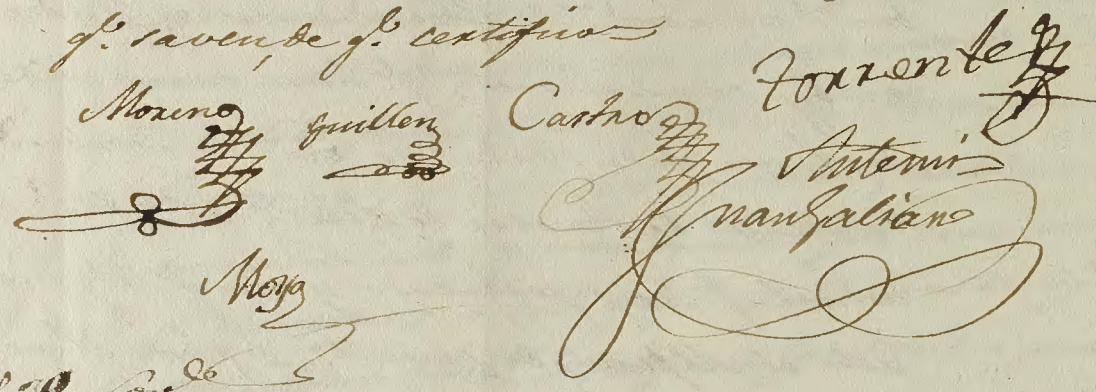 q.e saven, de q.e certifico=
Moreno Guillen Castro Torrente
Antemi=
Juan Galiano
Moya